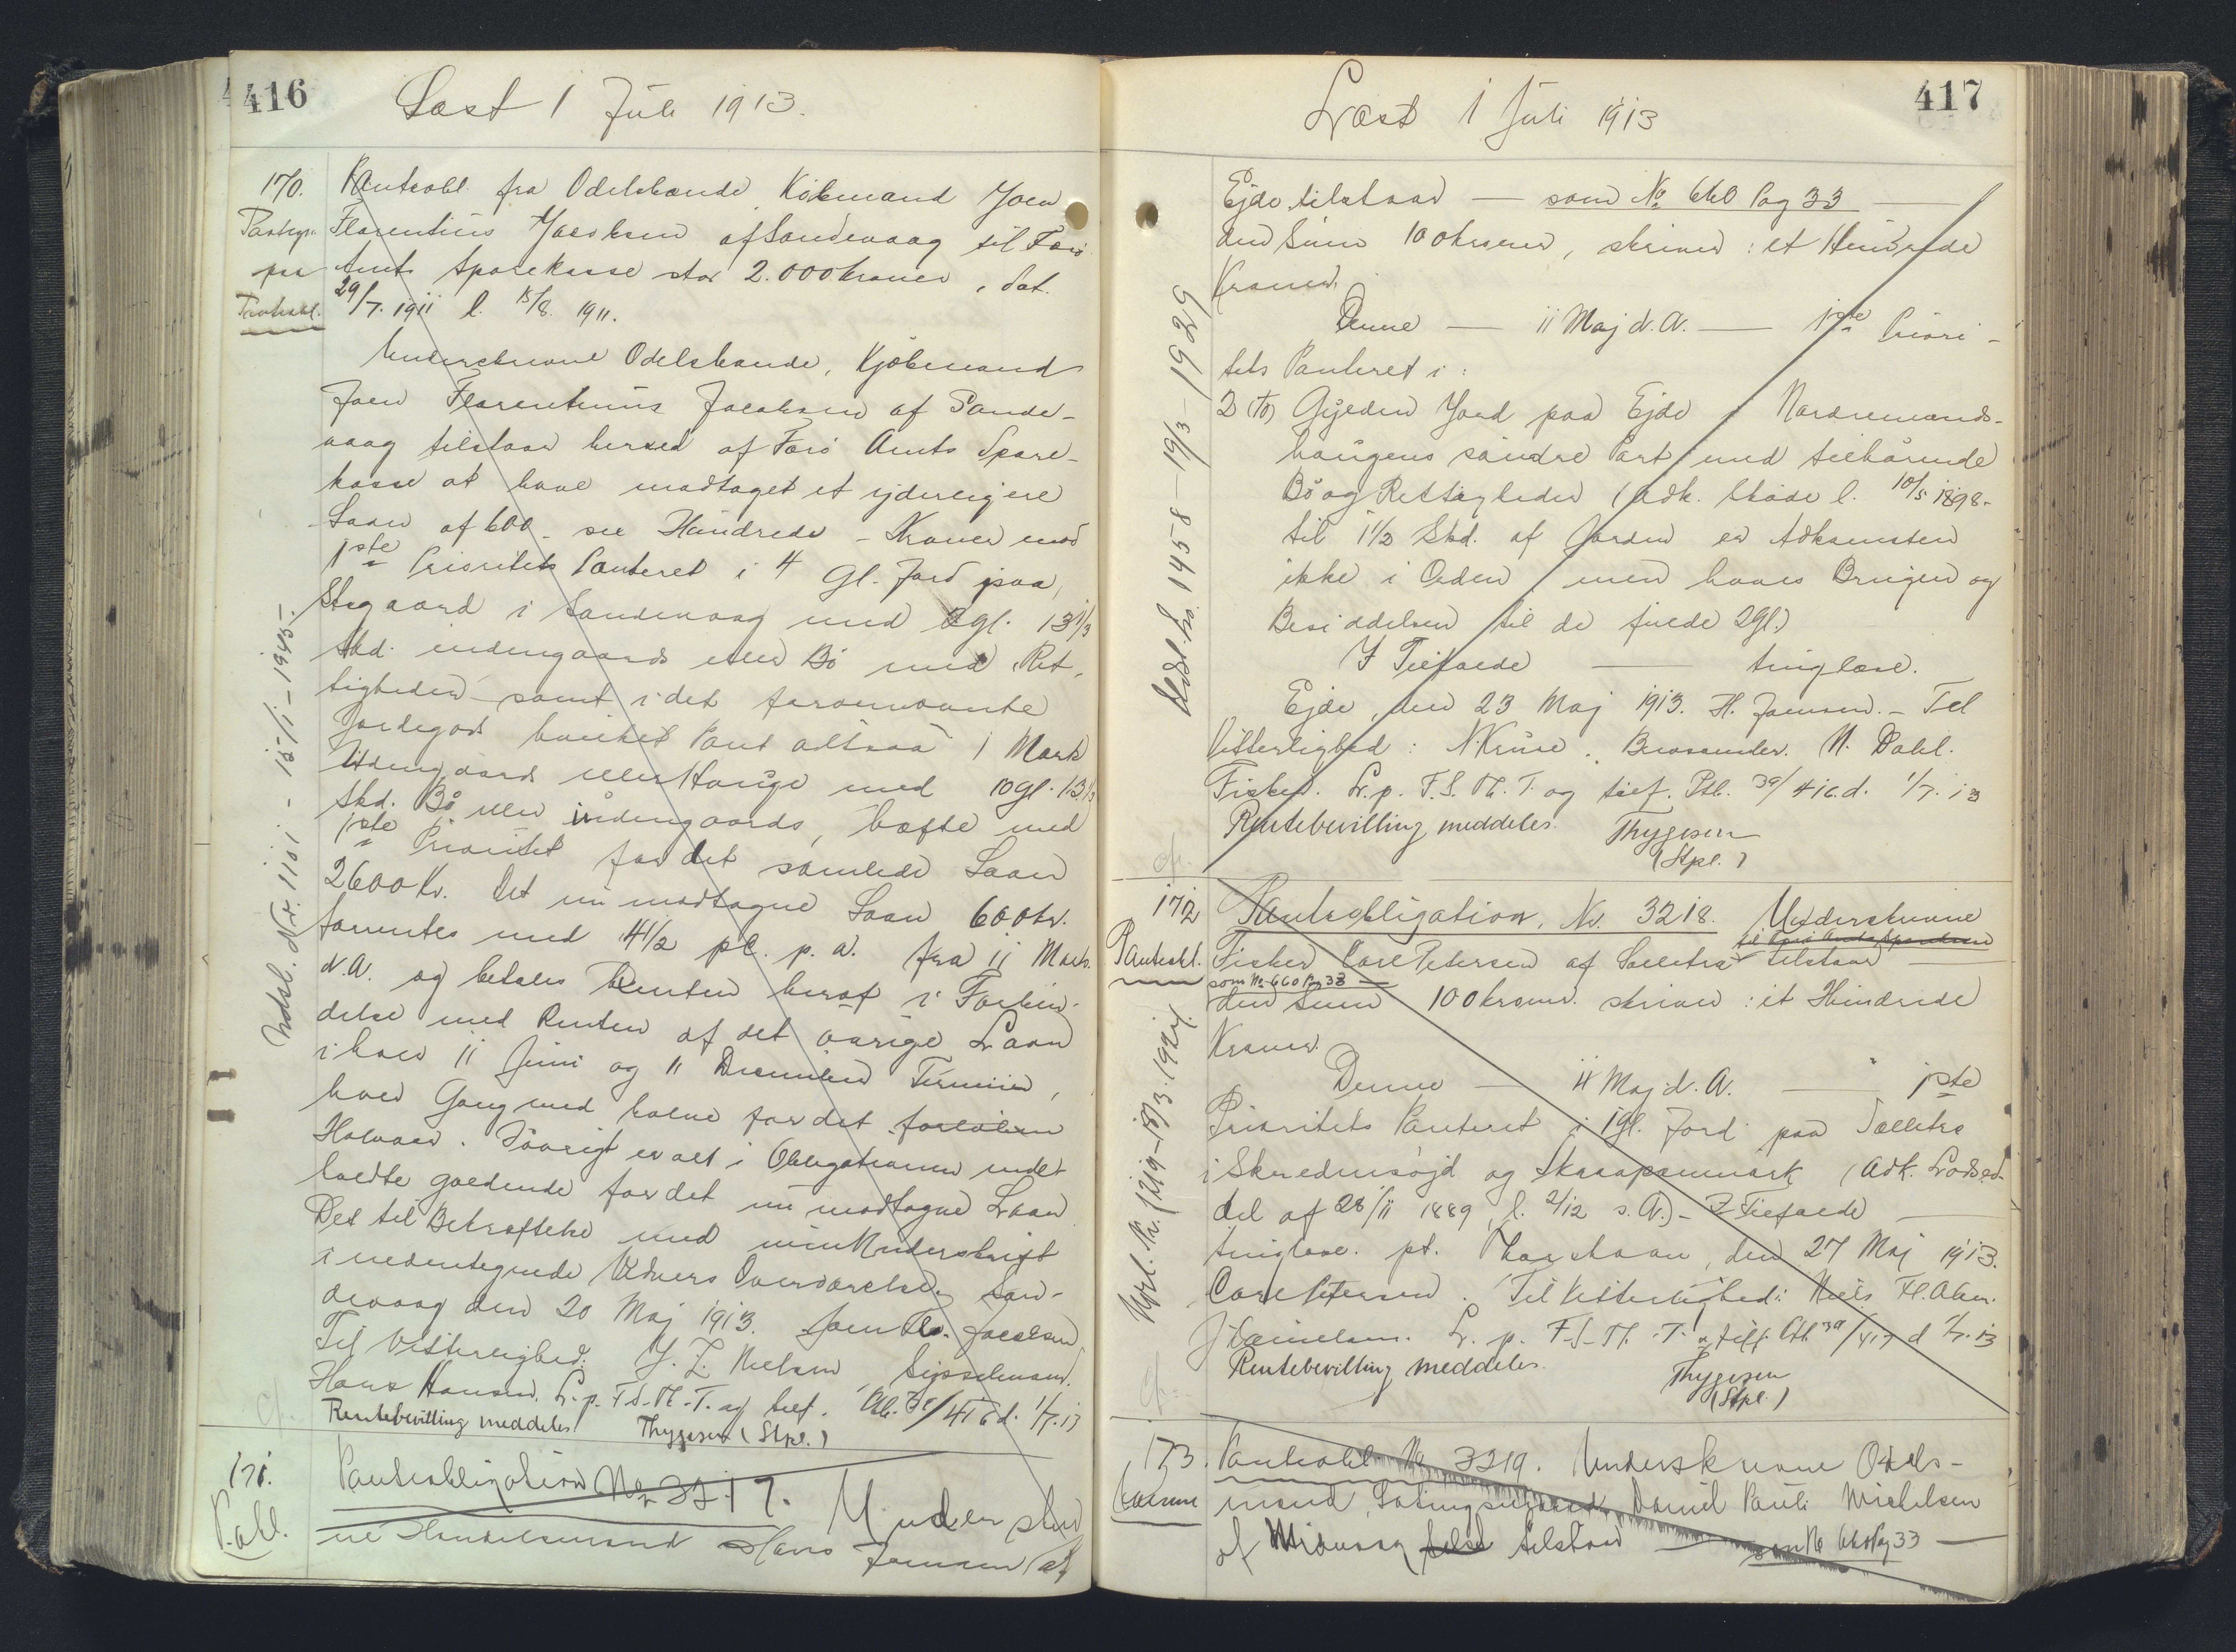 416
Læst 1 Juli 1913.
170.
Pantobl. fra Odelsbonde, Købmand Joen
Florentius Jacobsen af Sandevaag til Færø
Amts Sparekasse stor 2.000 kroner, dat.
29/7. 1911 l. 15/8. 1911.
paa
Pantobl.
Underskrevne Odelsbonde, Kjøbmand
Joen Florentinus Jacobsen af Sande-
vaag tilstaar herved af Færø Amts Spare-
kasse at have modtaget et yderligere
Laan af 600 - sex Hundrede - Kroner mod
1ste Prioritets Panteret i 4 gl. Jord paa
Stegaard i Sandevaag med 2 gl. 13 1/3
Skd. indengaards eller Bø med Ret-
tigheder samt i det forommeldte
Jordegods hvilket Pant altsaa 1 Mark
Udengaards eller Hauge med 10 gl. 13 1/3
Skd. Bø eller indengaards, hæfte med
1ste Prioritet for det samlede Laan
2600 Kr. Det nu modtagne Laan 600 kr.
forrentes med 4 1/2 pC. p. a. fra 11 Marts
d. A. og betales Renten heraf i Forbin-
delse med Renten af det øvrige Laan
i hver 11 Juni og 11 December Termin,
hver Gang med halve for det forløbne
Halvaar. Iøvrigt er alt i Obligationen inde-
holdte gældende for det nu modtagne Laan
Det til Bekræftelse med min Underskrift
i nedentegnede Vidners Overværelse. San-
devaag den 20 Maj 1913. Joen Fl. Jacobsen
Til Vitterlighed: J. Z. Nielsen Sysselmand.
Hans Hansen. L. p. F.S. M. T. og tilf. Ptb. 39/416 d. 1/7.13
Rentebevilling meddeles Thygesen (Stpl.)
Udsl. Nr. 1101 - 15/1 - 1945.
171.
P.obl.
Pantobligation No 3217. Underskrev
ne Handelsmand Hans Joensen af
417
Læst 1 Juli 1913
Ejde tilstaar — som No 660 Pag 33 —
den Sum 100 kroner, skriver: et Hundrede
Kroner.
Denne — 11 Maj d. A. — 1ste Priori-
tets Panteret i:
2 (to) Gylden Jord paa Ejde i Nordremands-
haugens søndre Part med tilhørende
Bø og Rettigheder (Adk. Skøde l. 10/5 1898.
til 1 1/2 Skd. af Jorden er Adkomsten
ikke i Orden men haves Brugen og
Besiddelsen til de fulde 2 gl.)
I Tilfælde — tinglæse.
Ejde, den 23 Maj 1913. H. Joensen. - Til
Vitterlighed: N Kruse. N. Dahl.
Fisker. L. p. F. S. M. T. og tilf. Ptb. 39/416 d. 1/7. 13
Rentebevilling meddeles. Thygesen
(Stpl.)
Udsl. No. 1458 - 19/3 - 1929
172
Pantobl.
Pantobligation, Nr. 3218. Underskrevne
til Færø Amts Sparekasse
Fisker Carl Petersen af Selletræ tilstaar —
som No 660 Pag 33 —
den Sum 100 kroner. skriver: et Hundrede
Kroner.
Denne — 11 Maj d. A. — 1ste
Prioritets Panteret i 1 gl. Jord paa Selletræ
i Skredmsøjd og Skaapanmark (Adk. Lodsed-
del af 28/11 1889, l. 2/12 s. A.) - I Tilfælde —
tinglæse. pt. Thorshavn, den 27 Maj 1913.
Carl Petersen. Til Vitterlighed: Niels
L. p. F. S. M. T. og tilf. Ptb. 39/417 d 1/7. 13
Rentebevilling meddeles. Thygesen
(Stpl.)
Udsl. Nr. 1219 - 18/3. 1924.
173.
Pantobl No 3219. Underskrevne Odels-
mand, Daniel Pauli Michelsen
af Midvaag tilstaar — som No 660 Pag 33 —